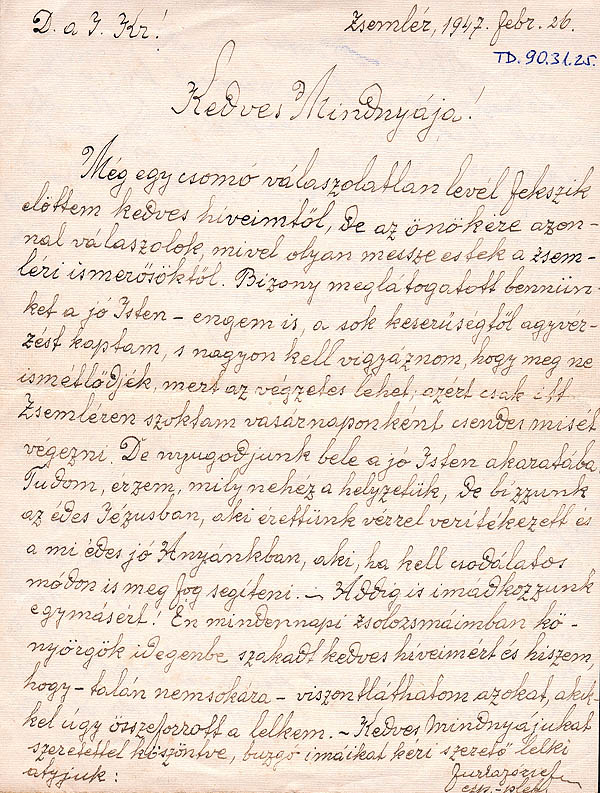 D. a J. Kr!
Zsemlér, 1947. febr. 26.
TD. 90.31.25.
Kedves Mindnyája!
Még egy csomó válaszolatlan levél fekszik
előttem kedves híveimtől, de az önökére azon-
nal válaszolok, mivel olyan messze estek a zsem-
léri ismerősöktől. Bizony meglátogatott bennün-
ket a jó Isten - engem is, a sok keserűségtől agyvér-
zést kaptam, s nagyon kell vigyáznom, hogy meg ne
ismétlődjék, mert az végzetes lehet; azért csak itt
Zsemléren szoktam vasárnaponként csendes misét
végezni. De nyugodjunk bele a jó Isten akaratába,
Tudom, érzem, mily nehéz a helyzetük, de bízzunk
az édes Jézusban, aki érettünk vérrel verítékezett és
a mi édes jó Anyánkban, aki, ha kell csodálatos
módon is meg fog segíteni. - Addig is imádkozzunk
egymásért! Én mindennapi zsolozsmáimban kö-
nyörgök idegenbe szakadt kedves híveimért és hiszem,
hogy - talán nemsokára - viszontláthatom azokat, akik-
kel úgy összeforrott a lelkem. - Kedves Mindnyájukat
szeretettel köszöntve, buzgó imáikat kéri szerető lelki
atyjuk:
esp.-pleb.